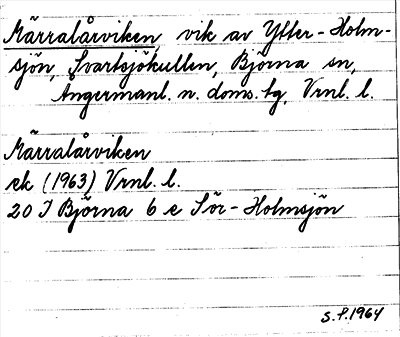 Märralårviken, vik av Ytter-Holm-
sjön, Svartsjökullen, Björna sn,
Ångermanl. n. doms. tg, Vrnl. l.
Märralårviken
ek (1963) Vrnl. l.
20 I Björna 6 e Sör-Holmsjön
S.P. 1964